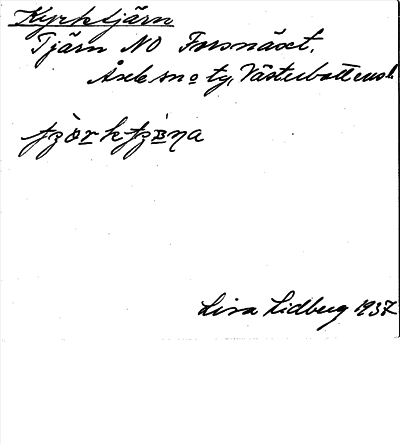 Kyrktjärn
Tjärn NO Forsnäset,
Åsele sn o tg, Västerbottens l.
Lisa Lidberg 1937